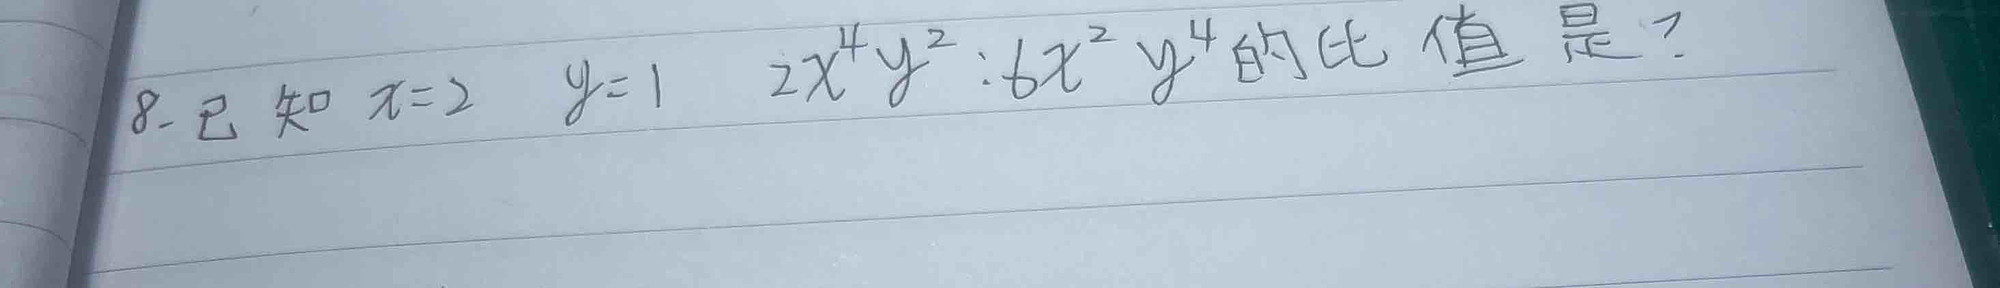 8-已知 x=2 y=1 2x⁴y²:6x²y⁴的比值是?